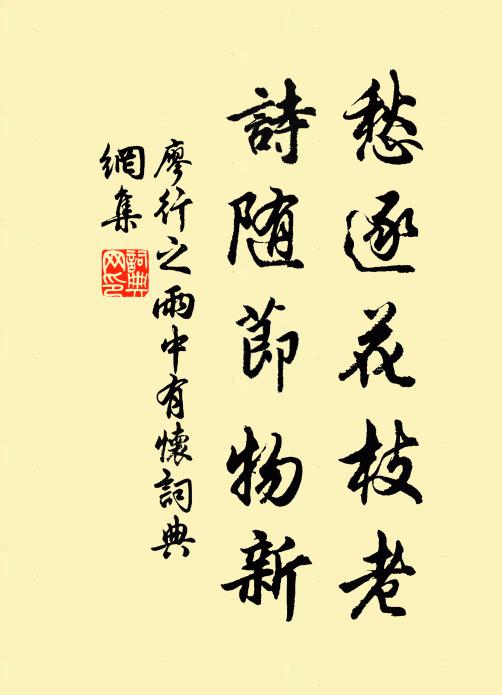 愁逐花枝老
詩随節物新
廖行之雨中有懷詞典
網集
詞典
网印